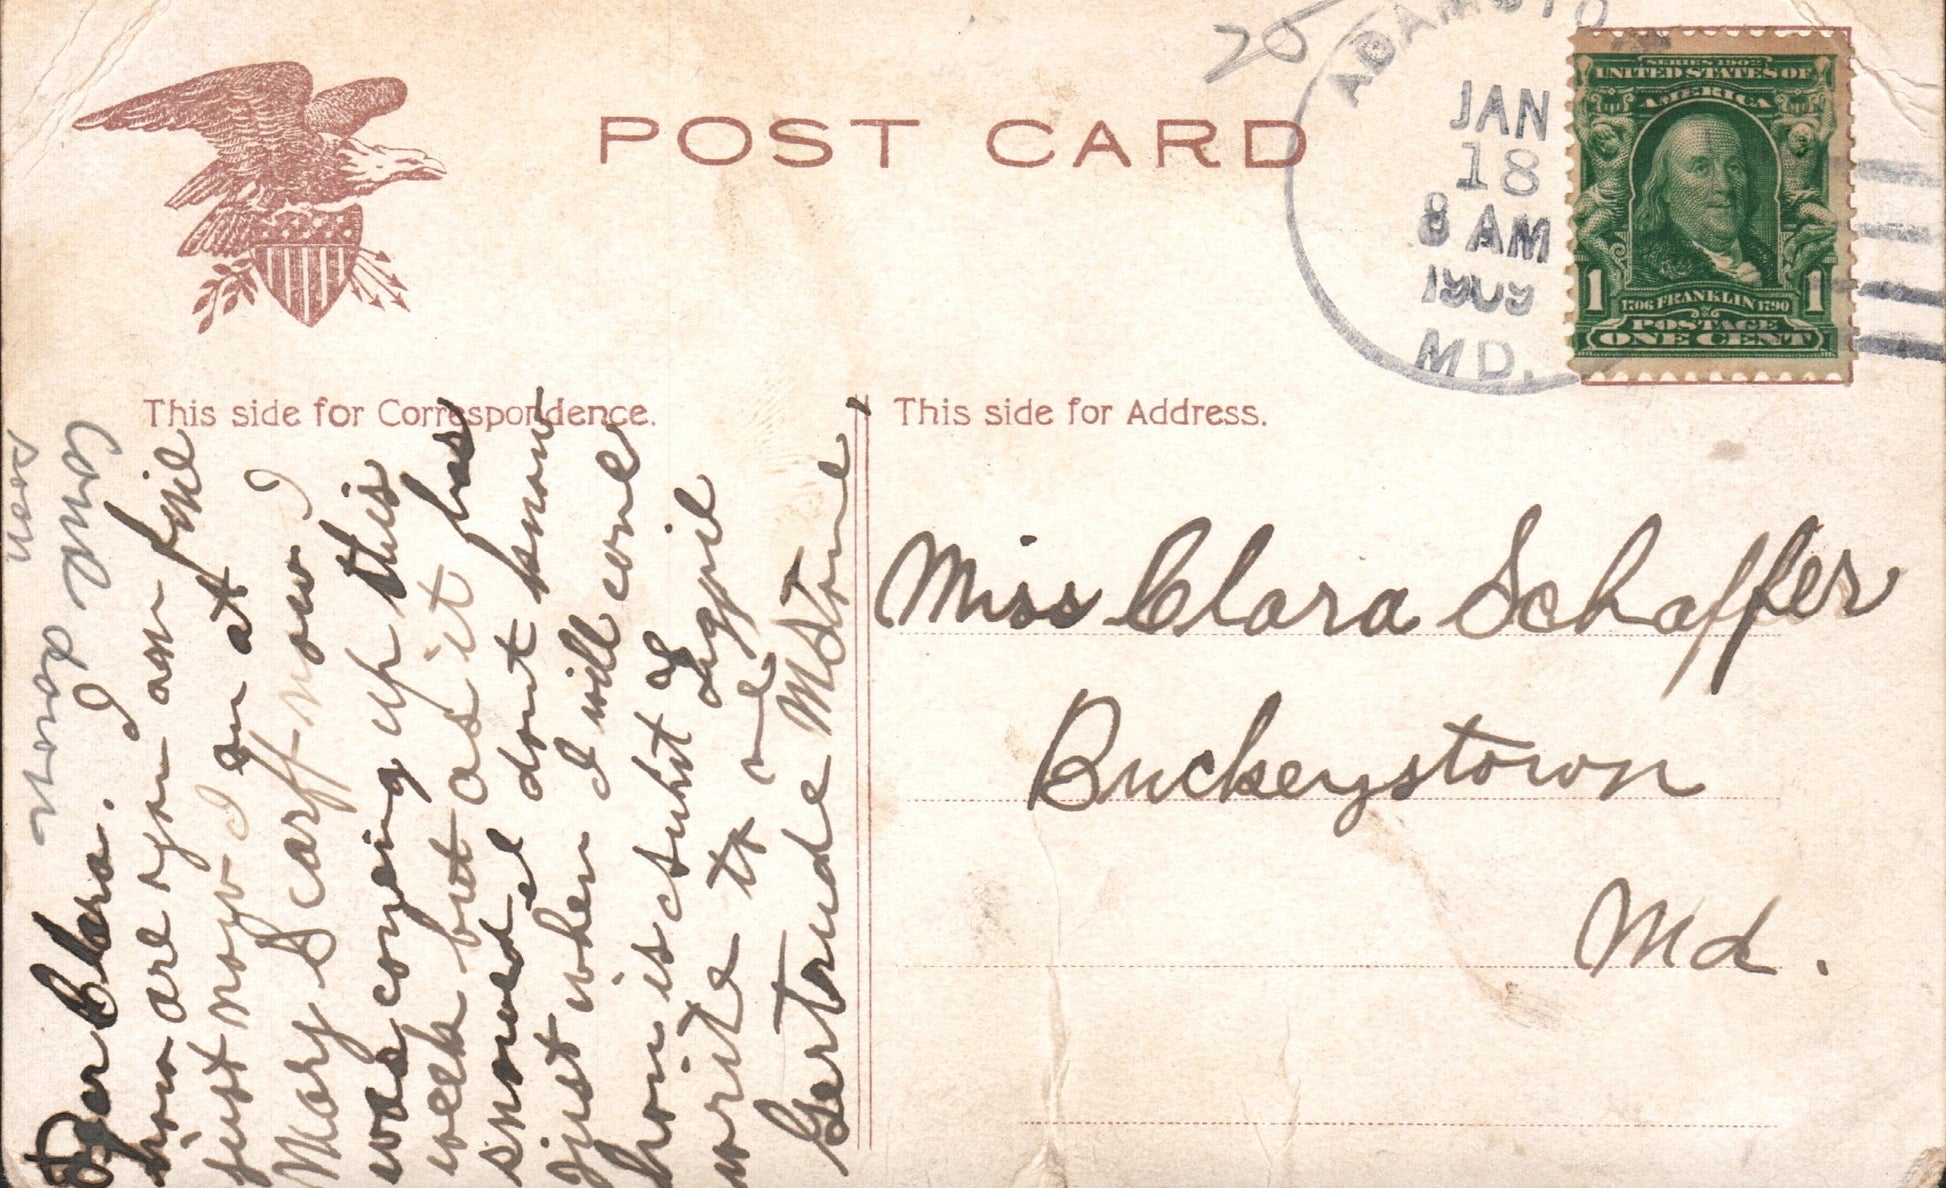 POST CARD
20
ADAMSTO
JAN
18
8 AM
1909
MD.
SERIES 1902
UNITED STATES OF
AMERICA
1 1
1706 FRANKLIN 1790
POSTAGE
ONE CENT
This side for Correspondence.
This side for Address.
Come down
soon
Dear Clara.
how are you I am fine
just now I am at
Mary Scarff now I
was comeing up this
week but as it has
snowed I dont know
just when I will come
how is
write to me
Gertrude M Stone
Miss Clara Schaffer
Buckeystown
Md.